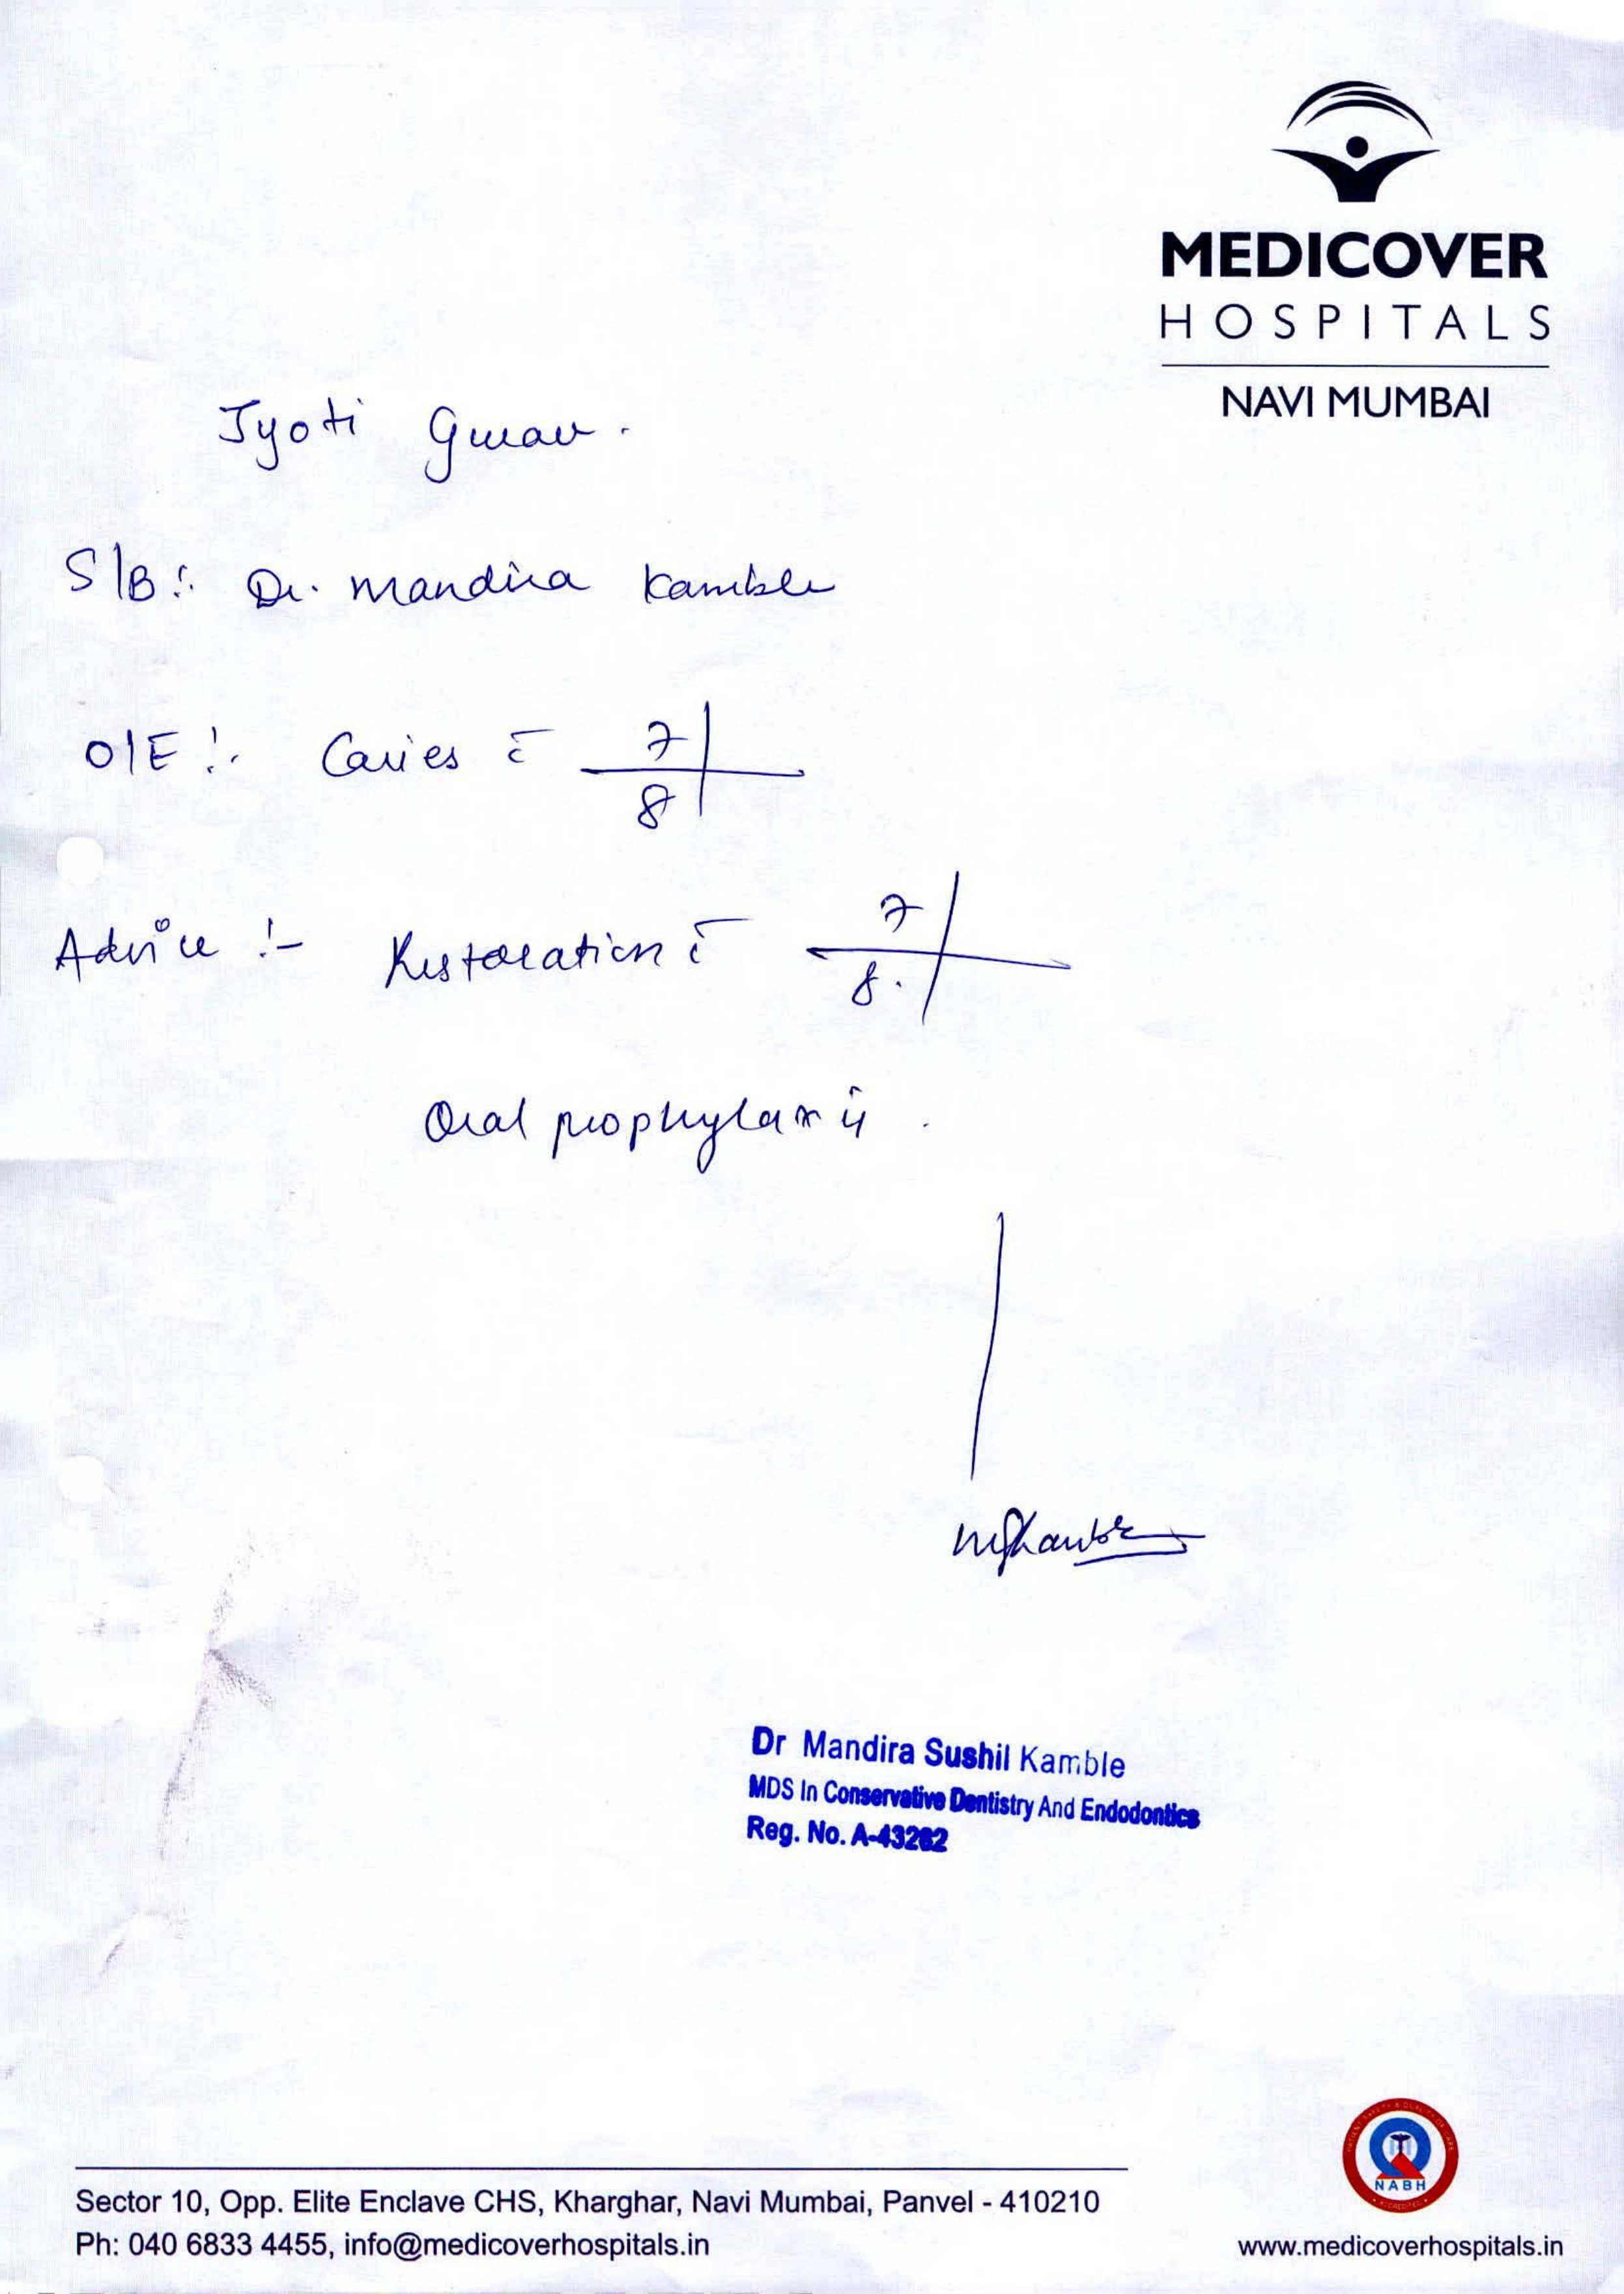 MEDICOVER
HOSPITALS
NAVI MUMBAI
Jyoti Gurav.
S/B:- Dr. Mandira Kamble
O/E:- Caries c̄ 7|
8|
Advice :- Restoration c̄ 7|
8.|
Oral prophylaxis.
Dr Mandira Sushil Kamble
MDS In Conservative Dentistry And Endodontics
Reg. No. A-43262
NABH
Sector 10, Opp. Elite Enclave CHS, Kharghar, Navi Mumbai, Panvel - 410210
Ph: 040 6833 4455, info@medicoverhospitals.in
www.medicoverhospitals.in